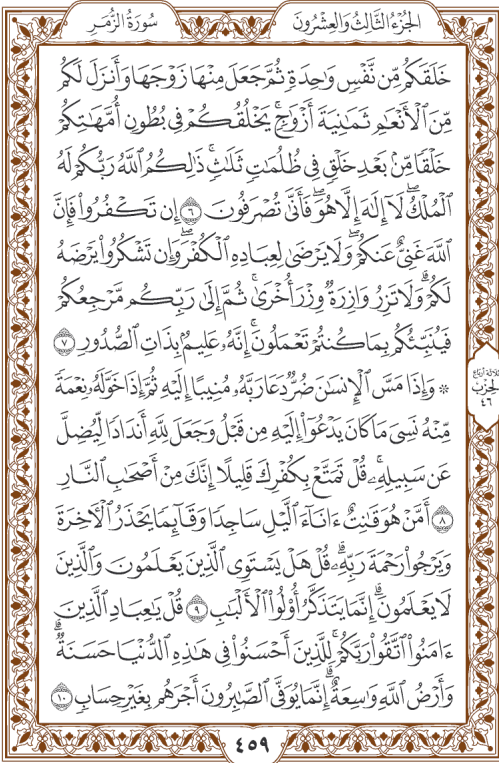 سُورَةُ الزُّمَرِ
الجُزْءُ الثَّالِثُ وَالعِشْرُونَ
خَلَقَكُم مِّن نَّفْسٖ وَٰحِدَةٖ ثُمَّ جَعَلَ مِنْهَا زَوْجَهَا وَأَنزَلَ لَكُم
مِّنَ ٱلْأَنْعَٰمِ ثَمَٰنِيَةَ أَزْوَٰجٖۚ يَخْلُقُكُمْ فِي بُطُونِ أُمَّهَٰتِكُمْ
خَلْقٗا مِّنۢ بَعْدِ خَلْقٖ فِي ظُلُمَٰتٖ ثَلَٰثٖۚ ذَٰلِكُمُ ٱللَّهُ رَبُّكُمْ لَهُ
ٱلْمُلْكُۖ لَآ إِلَٰهَ إِلَّا هُوَۖ فَأَنَّىٰ تُصْرَفُونَ ٦ إِن تَكْفُرُوا۟ فَإِنَّ
ٱللَّهَ غَنِيٌّ عَنكُمْۖ وَلَا يَرْضَىٰ لِعِبَادِهِ ٱلْكُفْرَۖ وَإِن تَشْكُرُوا۟ يَرْضَهُ
لَكُمْۗ وَلَا تَزِرُ وَازِرَةٞ وِزْرَ أُخْرَىٰۚ ثُمَّ إِلَىٰ رَبِّكُم مَّرْجِعُكُمْ
فَيُنَبِّئُكُم بِمَا كُنتُمْ تَعْمَلُونَۚ إِنَّهُۥ عَلِيمُۢ بِذَاتِ ٱلصُّدُورِ ٧
۞ وَإِذَا مَسَّ ٱلْإِنسَٰنَ ضُرّٞ دَعَا رَبَّهُۥ مُنِيبًا إِلَيْهِ ثُمَّ إِذَا خَوَّلَهُۥ نِعْمَةٗ
مِّنْهُ نَسِيَ مَا كَانَ يَدْعُوٓا۟ إِلَيْهِ مِن قَبْلُ وَجَعَلَ لِلَّهِ أَندَادٗا لِّيُضِلَّ
عَن سَبِيلِهِۦۚ قُلْ تَمَتَّعْ بِكُفْرِكَ قَلِيلًا إِنَّكَ مِنْ أَصْحَٰبِ ٱلنَّارِ
٨ أَمَّنْ هُوَ قَٰنِتٌ ءَانَآءَ ٱلَّيْلِ سَاجِدٗا وَقَآئِمٗا يَحْذَرُ ٱلْأٓخِرَةَ
وَيَرْجُوا۟ رَحْمَةَ رَبِّهِۦۗ قُلْ هَلْ يَسْتَوِي ٱلَّذِينَ يَعْلَمُونَ وَٱلَّذِينَ
لَا يَعْلَمُونَۗ إِنَّمَا يَتَذَكَّرُ أُو۟لُوا۟ ٱلْأَلْبَٰبِ ٩ قُلْ يَٰعِبَادِ ٱلَّذِينَ
ءَامَنُوا۟ ٱتَّقُوا۟ رَبَّكُمْۚ لِلَّذِينَ أَحْسَنُوا۟ فِي هَٰذِهِ ٱلدُّنْيَا حَسَنَةٞۗ
وَأَرْضُ ٱللَّهِ وَٰسِعَةٌۗ إِنَّمَا يُوَفَّى ٱلصَّٰبِرُونَ أَجْرَهُم بِغَيْرِ حِسَابٖ ١٠
ثلاثة أرباع
الحزب
٤٦
٤٥٩